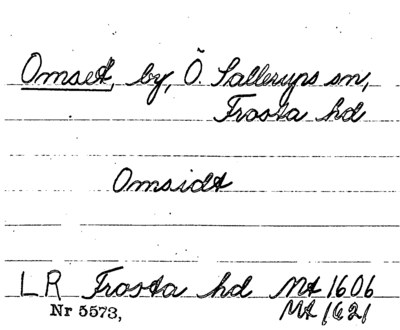 Omset, by, Ö. Sallerups sn,
Frosta hd
Omsidt
LR Frosta hd Mt 1606
Nr 5573, Mt 1621